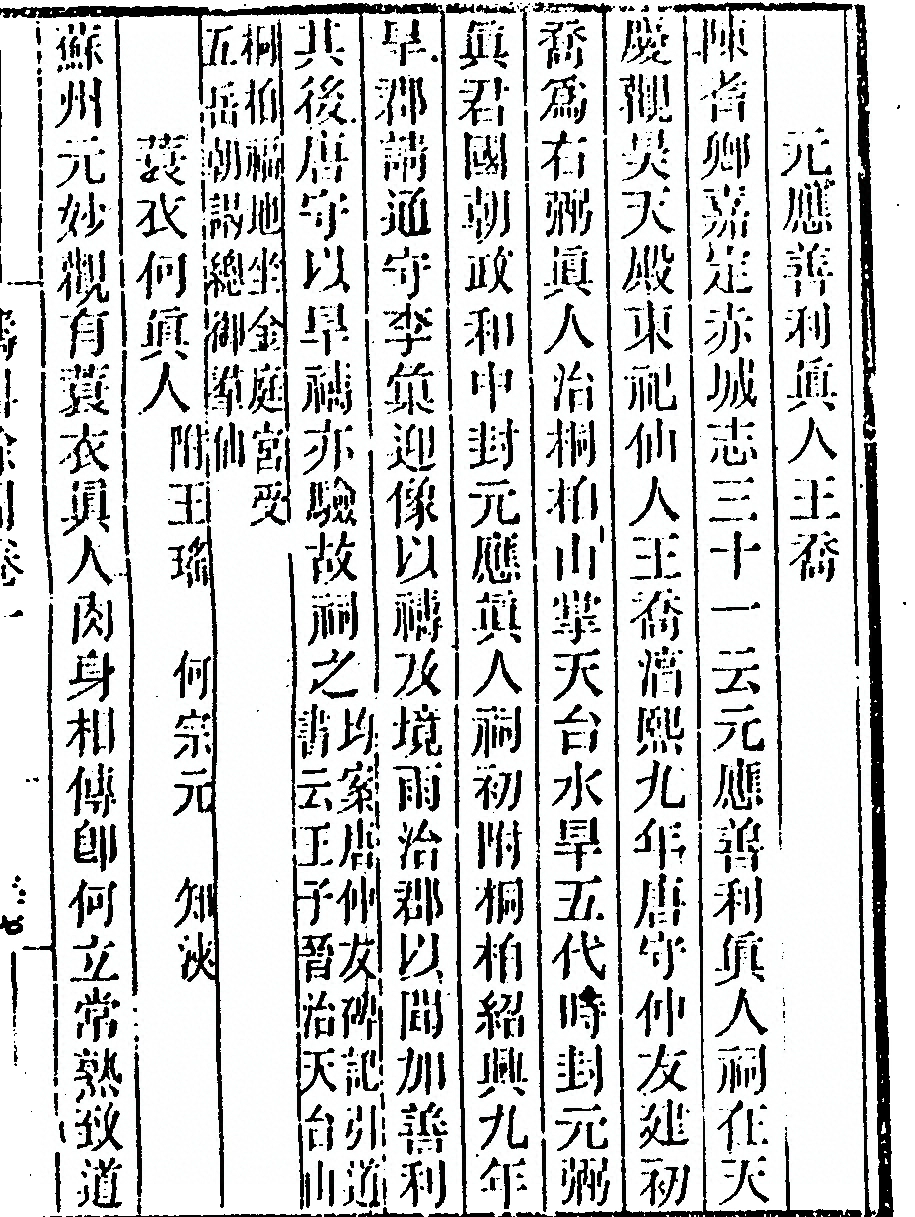 元應善利眞人王喬
陳耆卿嘉定赤城志三十一云元應善利眞人祠在天
慶觀昊天殿東祀仙人王喬淳熙九年唐守仲友建初
喬爲右弼眞人治桐柏山掌天台水旱五代時封元弼
眞君國朝政和中封元應眞人祠初附桐柏紹興九年
旱郡請通守李𥳑迎像以禱及境雨洽郡以聞加善利
其後唐守以旱禱亦驗故祠之均案唐仲友碑記引道
書云王子晉治天台山
桐柏福地坐金庭宮受
五岳朝謁總御羣仙
蓑衣何眞人附王瑤 何宗元 知淡
蘇州元妙觀有蓑衣眞人肉身相傳卽何立常熟致道